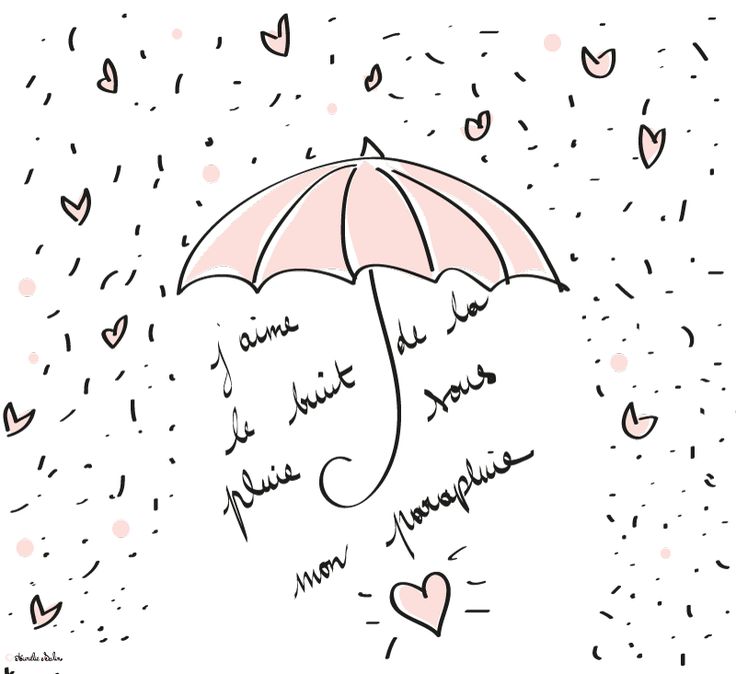 j'aime
le bruit
de la
pluie
sous
mon parapluie